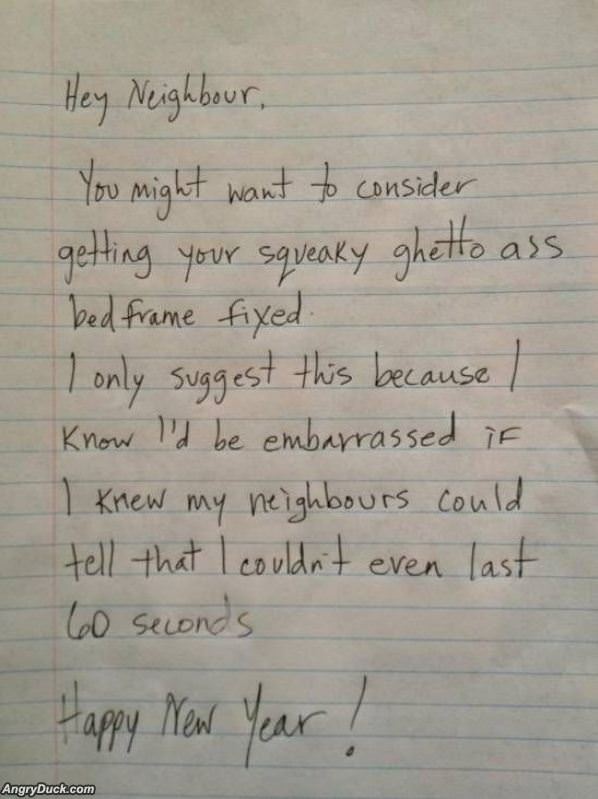 Hey Neighbour,
You might want to consider
getting your squeaky ghetto ass
bed frame fixed.
I only suggest this because I
know I'd be embarrassed if
I knew my neighbours could
tell that I couldn't even last
60 seconds
Happy New Year!
AngryDuck.com